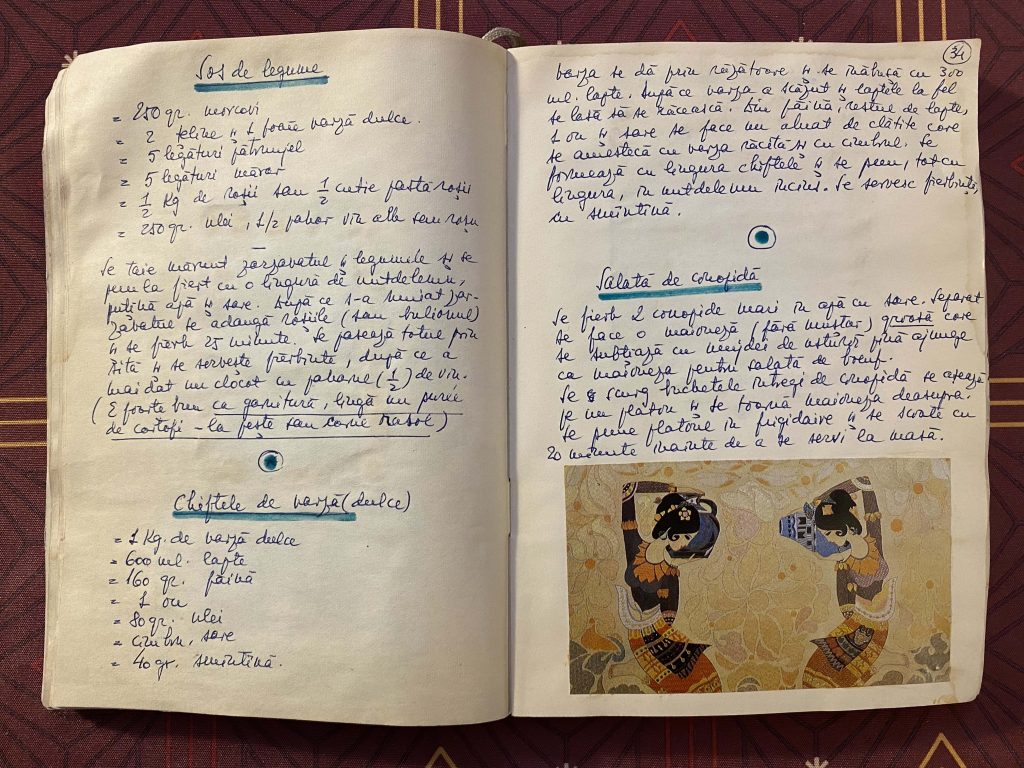 Sos de legume
= 250 gr. morcovi
= 2 feline și 1 foaie varză dulce.
= 5 legături pătrunjel
= 5 legături mărar
= 1/2 Kg de roșii sau 1/2 cutie pastă roșii
= 250 gr. ulei, 1/2 pahar vin alb sau roșu
Se taie mărunt zarzavatul și legumile și se
pun la fiert cu o lingură de untdelemn,
puțină apă și sare. După ce s-a muiat zar-
zavatul se adaugă roșiile (sau bulionul)
și se fierb 25 minute. Se pasează totul prin
sita și se servește fierbinte, după ce a
mai dat un clocot cu paharul (1/2) de vin.
(E foarte bun ca garnitură, lingă un purée
de cartofi - la pește sau carne rasol)
Chiftele de varză (dulce)
= 1 Kg. de varză dulce
= 600 ml. lapte
= 160 gr. făină
= 1 ou
= 80 gr. ulei
= cimbru, sare
= 40 gr. smîntînă.
34
Varza se dă prin răzătoare și se înăbușă cu 300
ml. lapte. După ce varza a scăzut și laptele la fel
se lasă să se răcească. Din făină, restul de lapte,
1 ou și sare se face un aluat de clătite care
se amestecă cu varza răcită și cu cimbrul. Se
formează cu lingura chiftele și se pun, tot cu
lingura, în untdelemn încins. Se servesc fierbinți,
cu smîntînă.
Salată de conopidă
Se fierb 2 conopide mari în apă cu sare. Separat
se face o maioneză (fără muștar) groasă care
se subțiază cu mujdei de usturoi pînă ajunge
ca maioneza pentru salata de boeuf.
Se scurg buchetele întregi de conopidă se așează
pe un platou și se toarnă maioneza deasupra.
Se pune platoul în frigidaire și se scoate cu
20 minute înainte de a se servi la masă.